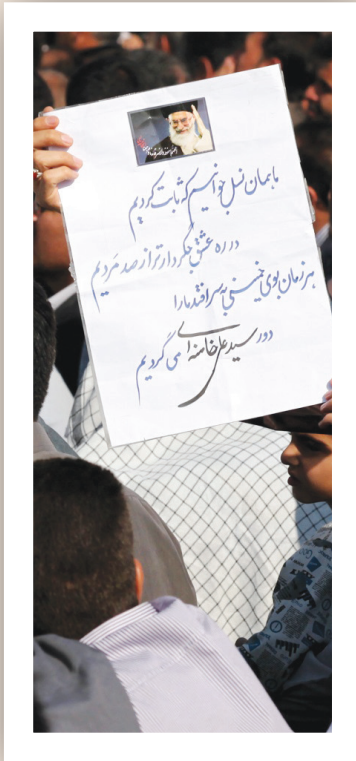 ما همان نسل جوانیم که ثابت کردیم
در ره عشق جگردارتر از صد مردیم
هر زمان بوی خمینی به سر افتد ما را
دور سید علی خامنه ای می گردیم